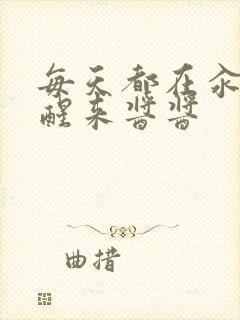 每天都在汆
醒来酱酱
曲措